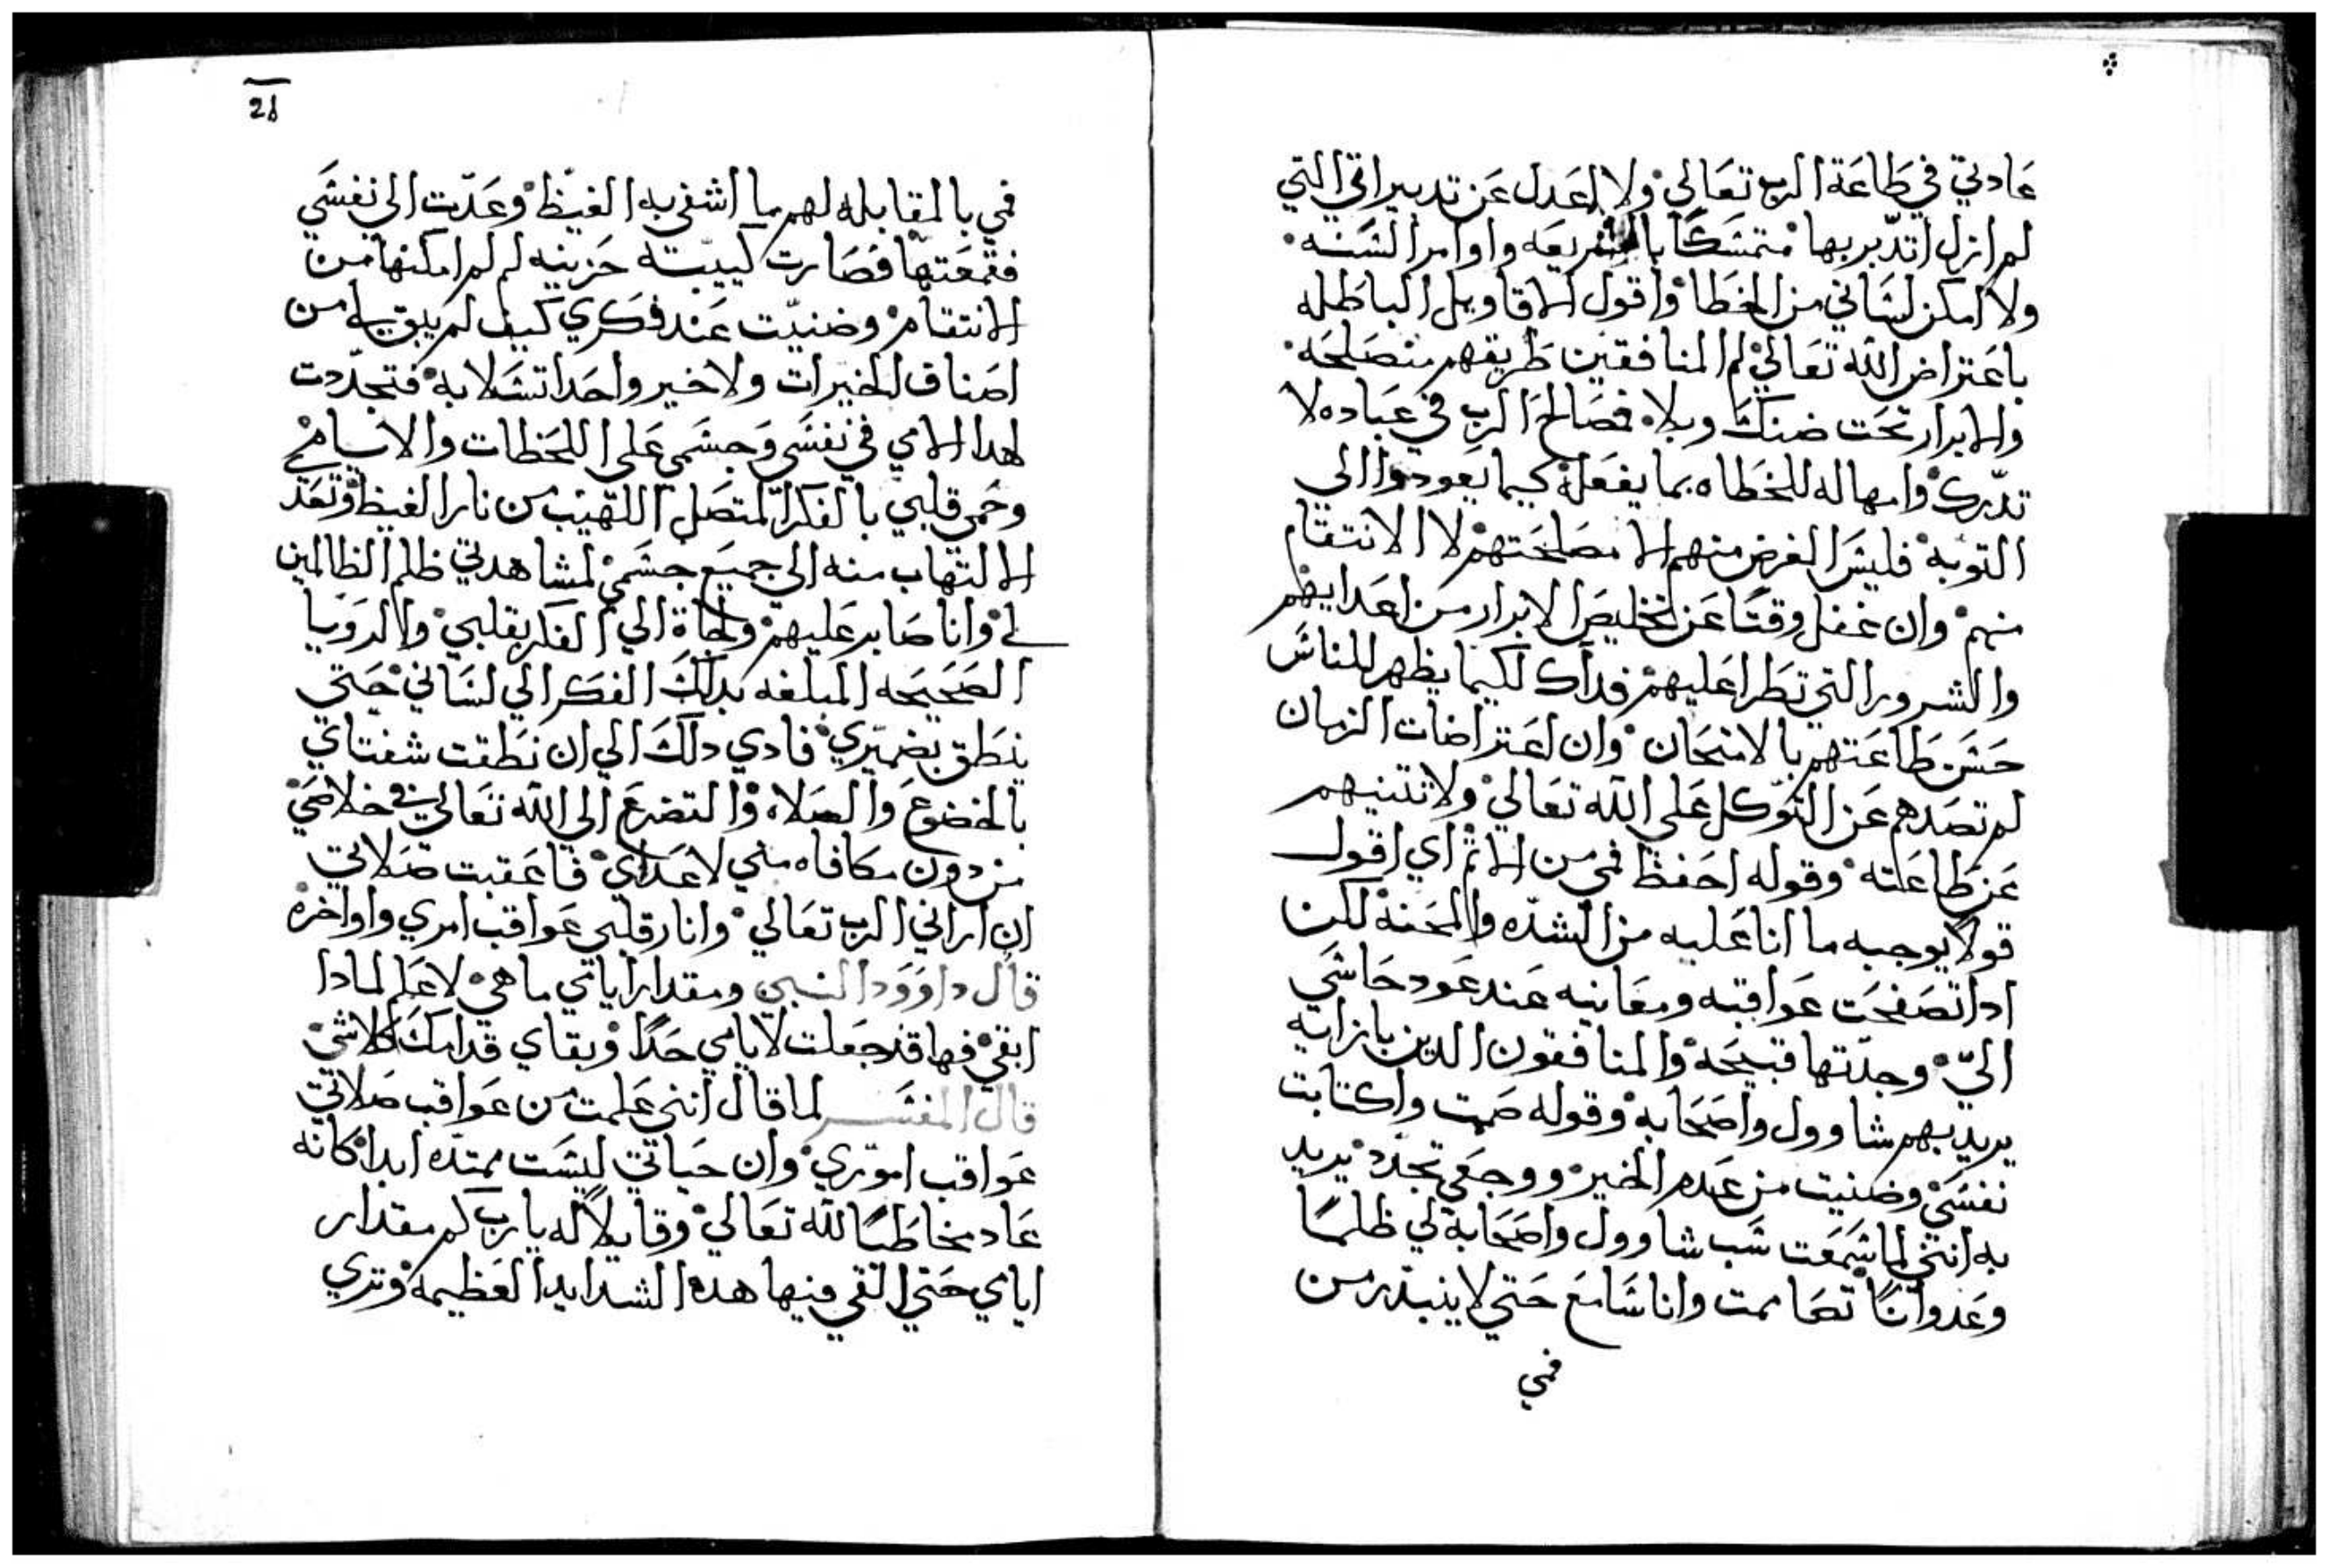 عادتي في طاعة الرب تعالي ولا اعدل عن تدبيراتي التي
لم ازل اتدبر بها متمسكًا بالشريعه واوامر السنه
ولا امكن لساني من الخطا واقول الاقاويل الباطله
باعتراض الله تعالي لم المنافقين طريقهم منصلحه
والابرار تحت ضنك وبلاء فصالح الرب في عباده لا
تدرك وامهاله للخطاه بما يفعله كيما يعودوا الي
التوبه فليس الغرض منهم الا مصلحتهم لا الانتقام
منهم وان غفل وقتًا عن تخليص الابرار من اعدايهم
والشرور التي تطرا عليهم فداك لكيما يظهر للناس
حسن طاعتهم بالامتحان وان اعتراضات الزمان
لم تصدهم عن التوكل علي الله تعالي ولا تثنيهم
عن طاعته وقوله احفظ فمي من الاثم اي اقول
قولا يوجبه ما انا عليه من الشده والمحنه لكن
ادا تصفحت عواقبه ومعانيه عند عود حاسي
الي وجدتها قبيحه والمنافقون الدين بازايه
يريد بهم شاوول واصحابه وقوله صمت واكتابت
نفسي وضنيت من عدم الخير ووجعي تجدد يريد
به انني لما سمعت سب شاوول واصحابه لي ظلمًا
وعدوانًا تصاممت وانا سامع حتي لا ينبدر من
فمي
21
فمي بالمقابله لهم ما اشفي به الغيظ وعدت الي نفسي
فقمعتها فصارت كييبة حزينه لم لم امكنها من
الانتقام وضنيت عند فكري كيف لم يبق لي من
اصناف الخيرات ولا خير واحد اتسلا به فتجددت
لهدا الامي في نفسي وجسمي علي اللحظات والاسامي
وحمي قلبي بالفكر المتصل اللتهيب من نار الغيظ وتعد
الالتهاب منه الي جميع جسمي لمشاهدتي ظلم الظالمين
لي وانا صابر عليهم ولجاة الي الفكر بقلبي والرويا
الصحيحه المبلغه بدلك الفكر الي لساني حتي
ينطق بضميري فادي دلك الي ان نطقت شفتاي
بالخضوع والصلاه والتضرع الي الله تعالي في خلاصي
من دون مكافاه مني لاعداي فاعقبت صلاتي
ان اراني الرب تعالي وانار قلبي عواقب امري واواخره
قال داوود النبي ومقدار ايامي ما هي لاعلم لمادا
ابقي فها قد جعلت لايامي حدًا وبقاي قدامك كلا شي
قال المفسر لما قال انني علمت من عواقب صلاتي
عواقب اموري وان حياتي ليست ممتده ابدا كانه
عاد مخاطبًا لله تعالي وقايلاً له يارب كم مقدار
ايامي حتي التقي فيها هده الشدايد العظيمه وتري